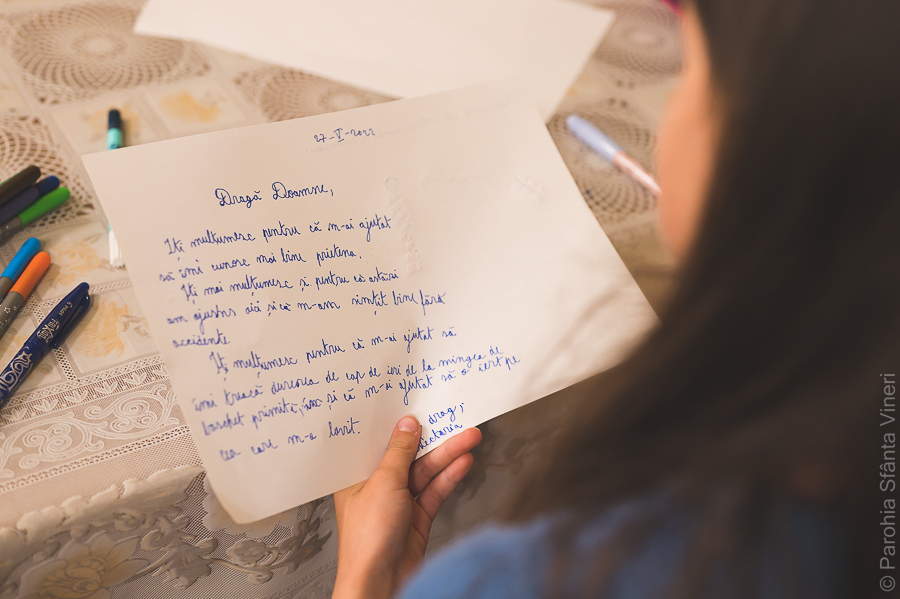 27-V-2022
Dragă Doamne,
Îți mulțumesc pentru că m-ai ajutat
să îmi cunosc mai bine prietena.
Îți mai mulțumesc și pentru că astăzi
am ajuns aici și că m-am simțit bine fără
accidente
Îți mulțumesc pentru că m-ai ajutat să
îmi treacă durerea de cap de ieri de la mingea de
baschet primită, și că m-ai ajutat să o iert pe
cea care m-a lovit.
drag,
Nectaria
© Parohia Sfânta Vineri